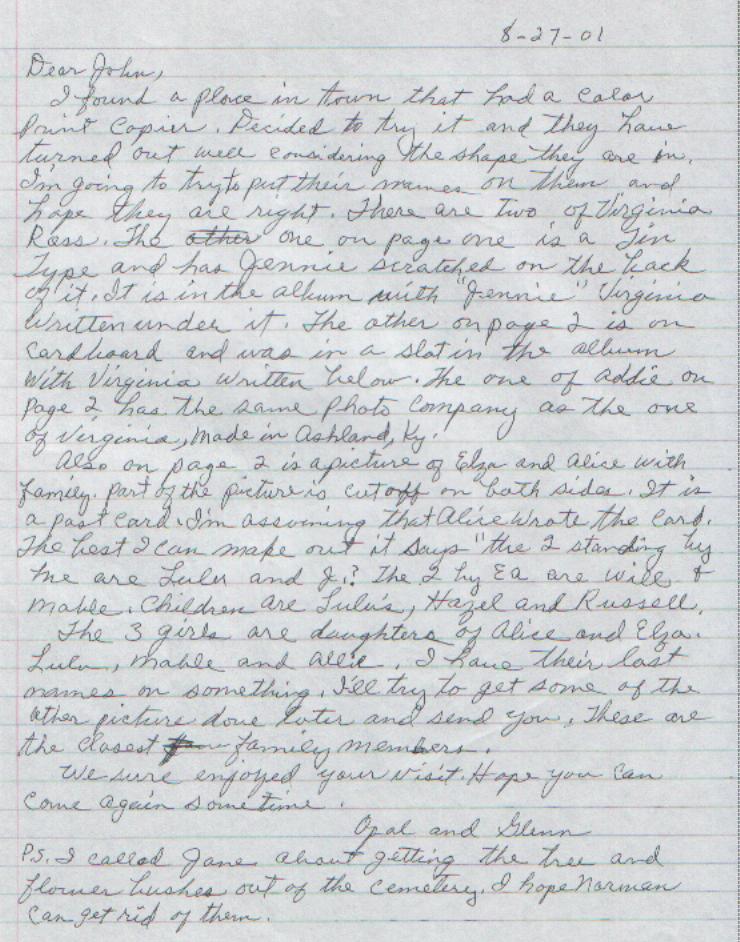 8-27-01
Dear John,
I found a place in town that had a color
Print Copier. Decided to try it and they have
turned out well considering the shape they are in.
I'm going to try to put their names on them and
hope they are right. There are two of Virginia
Ross. The other one on page one is a Tin
Type and has Jennie scratched on the back
of it. It is in the album with "Jennie" Virginia
written under it. The other on page 2 is on
cardboard and was in a slot in the album
With Virginia written below. The one of Addie on
Page 2 has the same Photo Company as the one
of Virginia, made in Ashland, Ky.
Also on page 2 is a picture of Elza and Alice with
family. part of the picture is cut off on both sides. It is
a post card. I'm assuming that Alice wrote the card.
The best I can make out it says "the 2 standing by
me are Lulu and J.? The 2 by Ea are Will &
Mable. Children are Lulu's, Hazel and Russell.
The 3 girls are daughters of Alice and Elza.
Lulu, Mable and Allie. I have their last
names on something. I'll try to get some of the
other picture done later and send you. These are
the closest family members.
We sure enjoyed your visit. Hope you can
come again sometime.
Opal and Glenn
P.S. I called Jane about getting the tree and
flower bushes out of the cemetery. I hope Norman
can get rid of them.